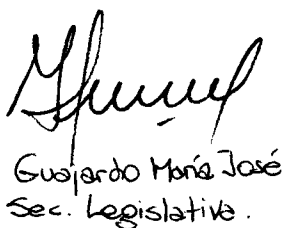 Guajardo María José
Sec. Legislativa.